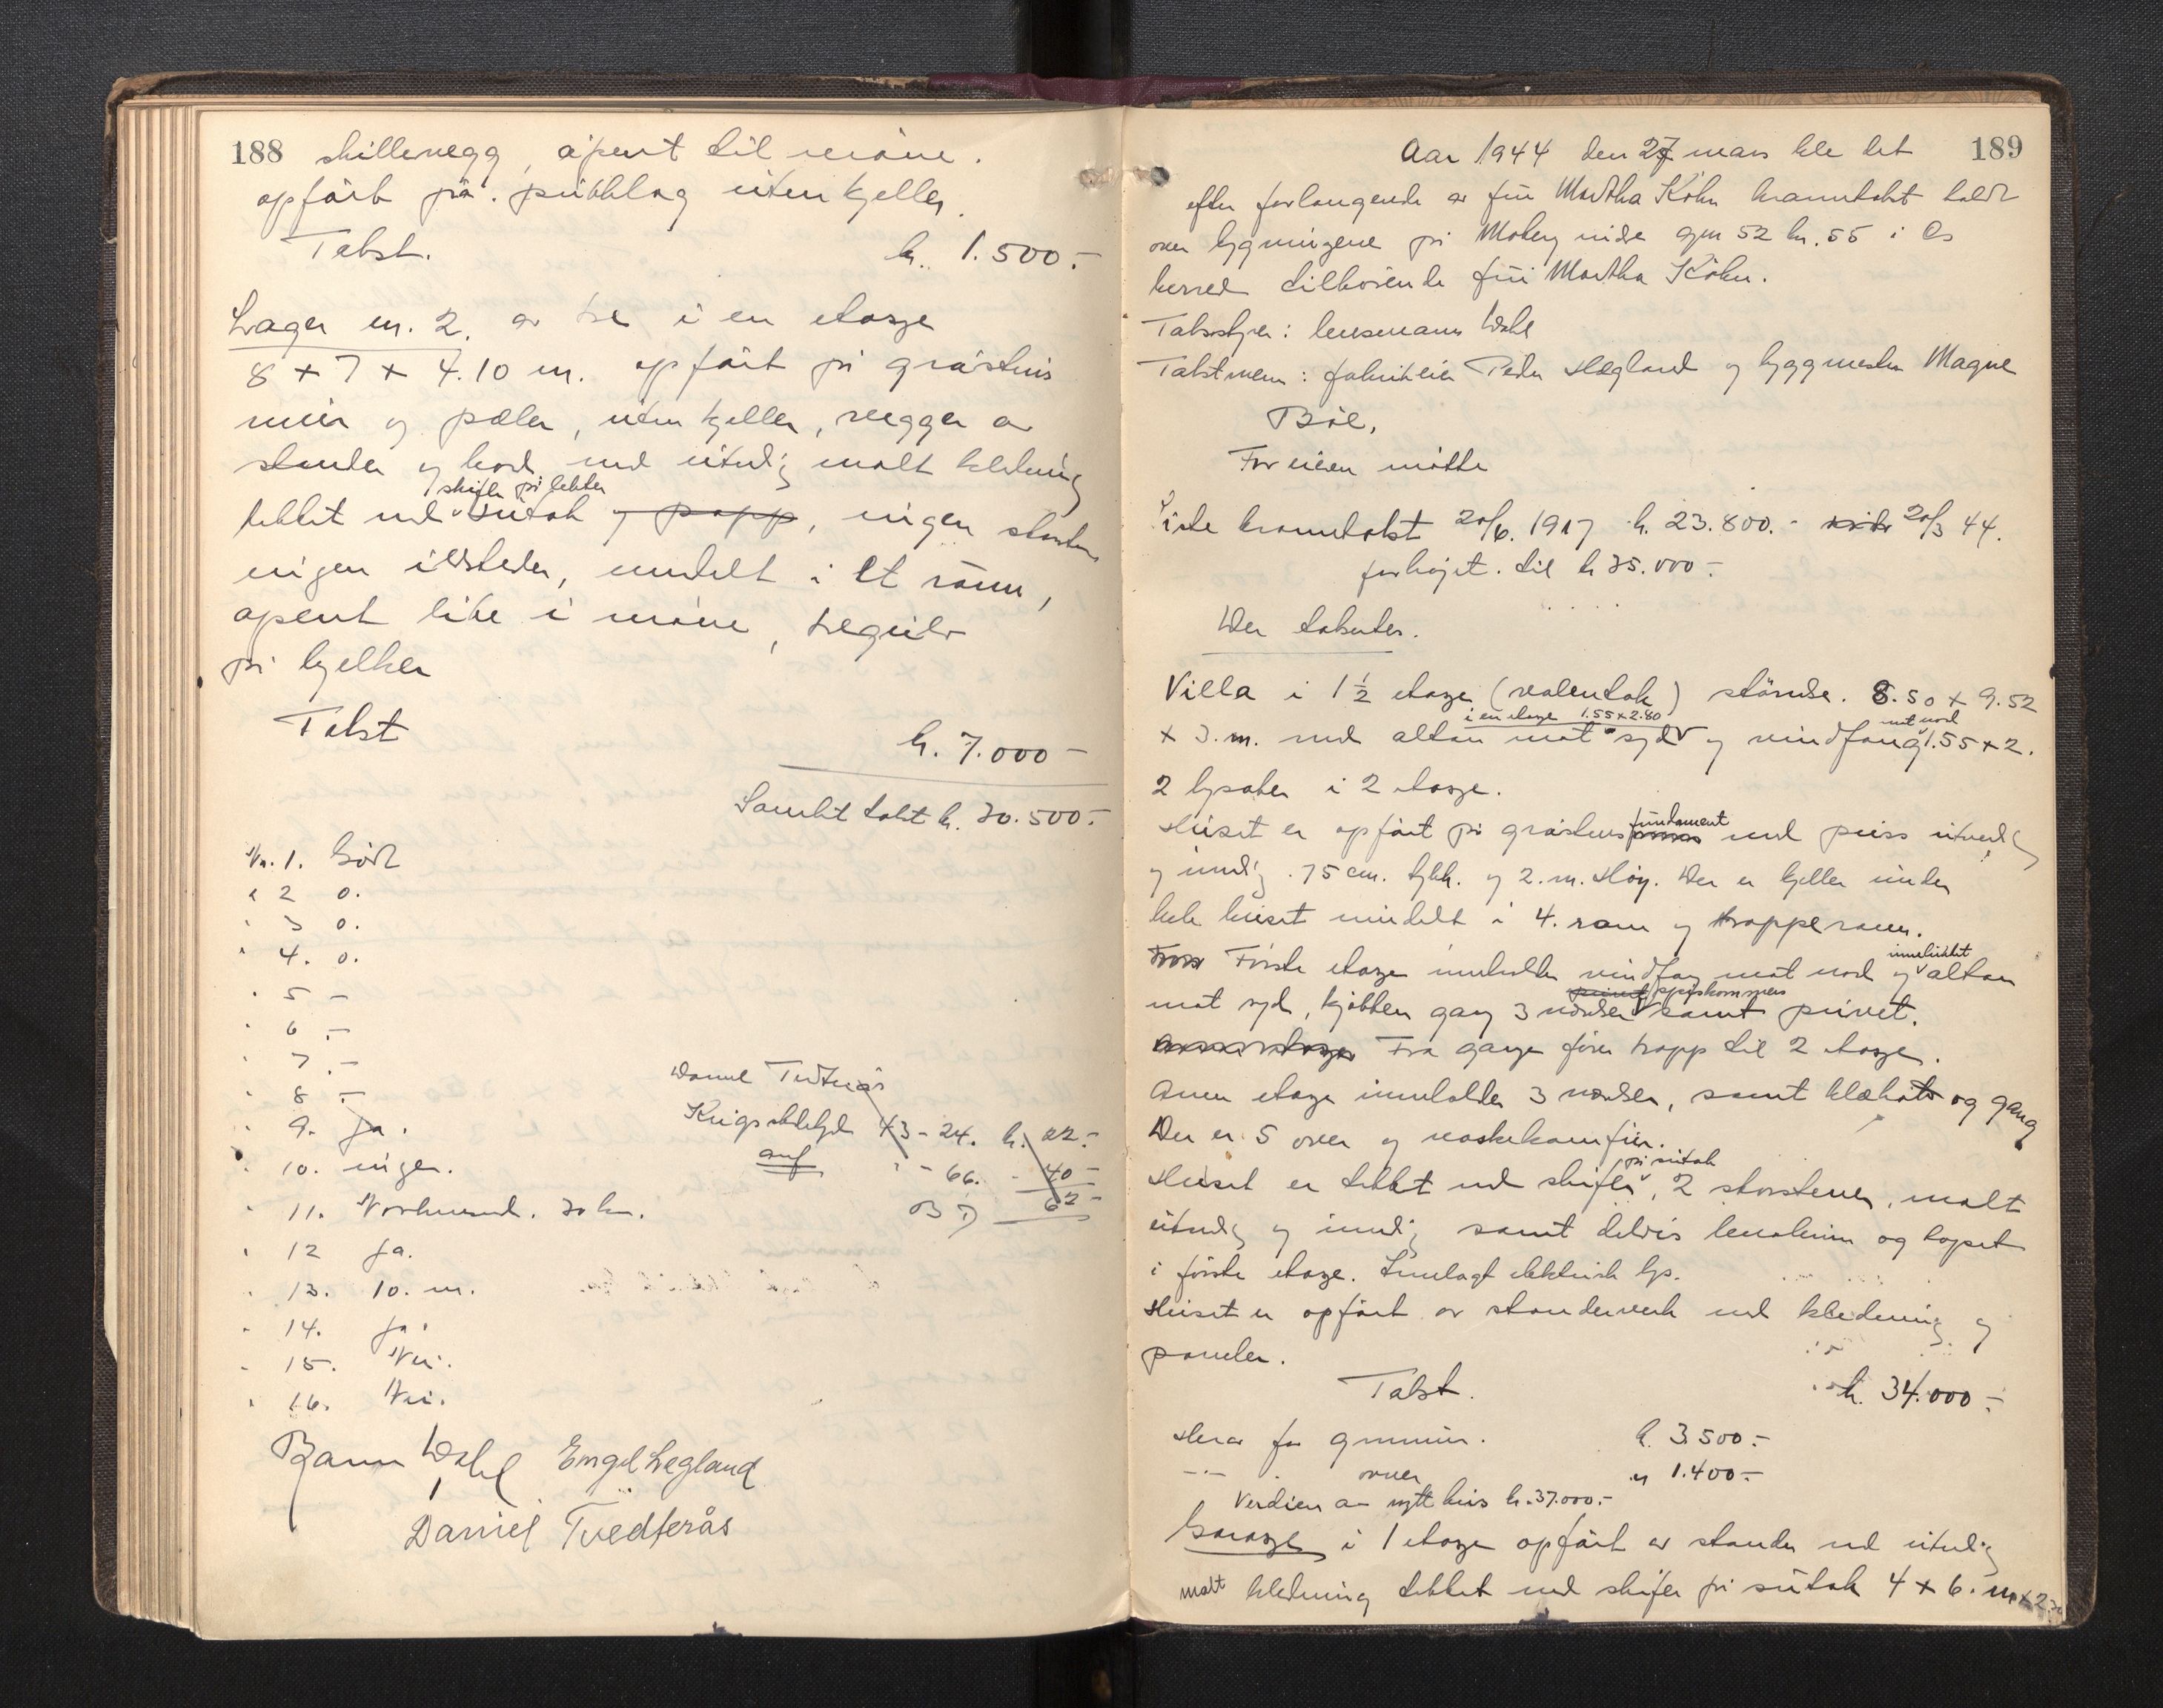 188 skillevegg, åpent til möne.
opfört på pukklag uten kjeller.
Takst. kr. 1.500.-
Lager nr. 2. av tre i en etasje
8 x 7 x 4.10 m. opfört på gråstens
mur og pæler, uten kjeller, vegger av
stender og bord med utvendig malt kledning
tekket med skifer på lekter sutak og papp, ingen skorsten
ingen ildsteder, inndelt i et rum,
åpent like i möne, tregulv
på bjelker
Takst kr. 7.000-
Samlet takst kr. 30.500.-
Nr. 1. Godt
" 2 0.
" 3 0.
" 4. 0.
" 5 -
" 6 -
" 7 -
" 8 -
" 9. Ja.
" 10. ingen.
" 11. Nordheimsund. 30 km.
" 12 Ja.
" 13. 10. m.
" 14. Ja.
" 15. Nei.
" 16. Nei.
Daniel Tvedterås
43-24. kr. 22.-
" - 66. - 40-
62-
Wahl Engel Legland
Daniel Tvedterås
Aar 1944 den 27 mars ble det 189
efter forlangende av fru Martha Köhn branntakst holdt
over bygningene på Moberg nidre gnr 52 br. 55 i Os
herred tilhörende fru Martha Köhn.
Takststyrer: lensmann Wahl
Takstmenn: fabrikeier Peder Hegland og byggmester Magne
Böe.
For eieren mötte
Siste branntakst 20/6. 1917 kr. 23.800.- 20/3 44.
forhöjet til kr 35.000-
Der takseres.
Villa i 1 1/2 etasje (valentak) störrelse. 8.50 x 9.52
x 3. m. med altan i en etasje 1.55 x 2.80 mot syd og vindfang mot nord 1.55 x 2.
2 kvister i 2 etasje.
Huset er opfört på gråstens fundament med puss utvendig
og innvendig. 75 cm. tykk. og 2. m. Höy. Der er kjeller under
hele huset inndelt i 4. rom og trapperom.
Förste etasje inneholder vindfang mot nord og innelukket altan
mot syd, kjökken gang 3 værelser spiskammers samt privet.
Fra gange förer trapp til 2 etasje.
Annen etasje inneholder 3 værelser, samt klækott og gang
Der er 5 ovner og vaskekomfur.
Huset er tekket med skifer på sutak, 2 skorstener, malt
utvendig og innvendig samt delvis lenoleum og tapet
i förste etasje. Innlagt elektrisk lys.
Huset er opfört av stenderverk med kledning og
paneler.
Takst. kr. 34.000-
Herav for grunnmur. kr. 3.500.-
-"- " ovner " 1.400.-
Verdien av nytt hus kr. 37.000.-
Garasje i 1 etasje opfört av stender med utvendig
malt kledning tekket med skifer på sutak 4 x 6. m x